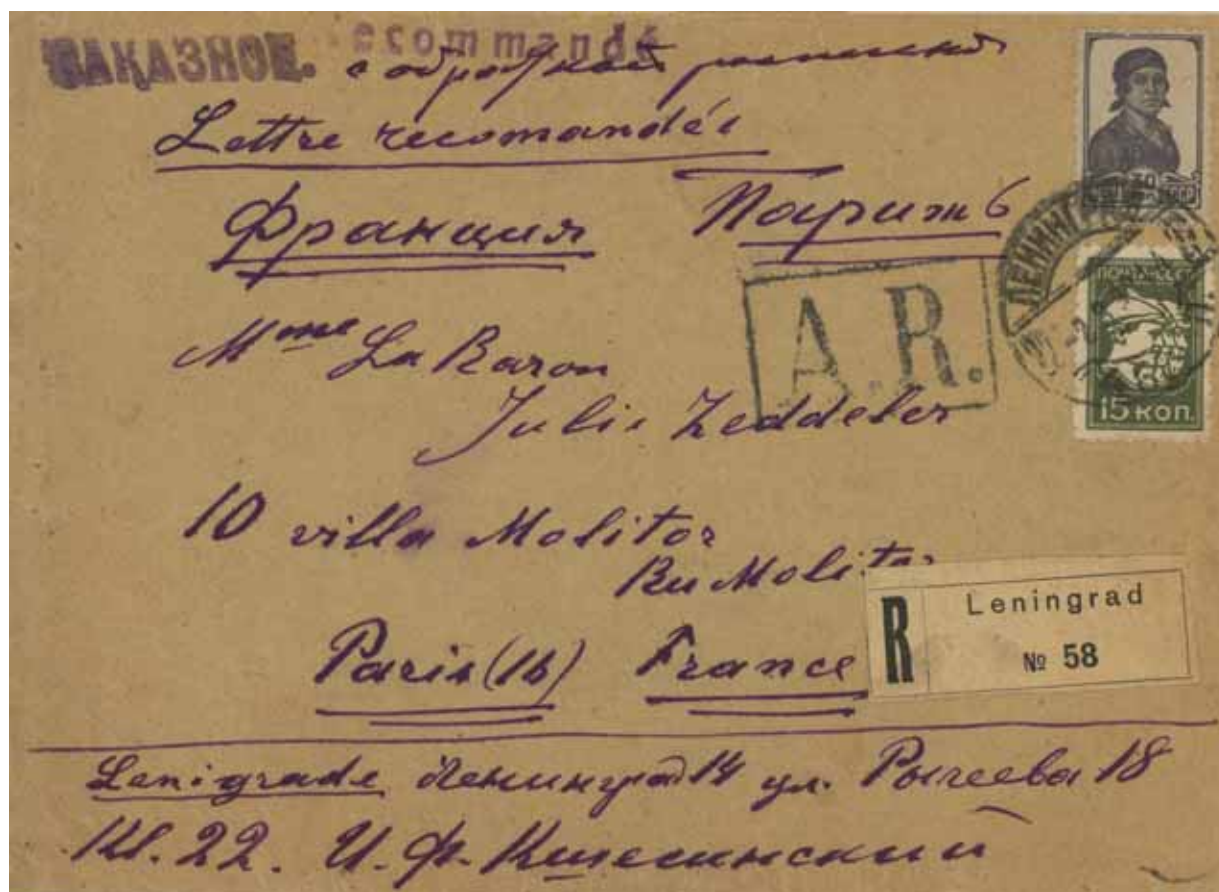 ЗАКАЗНОЕ. ecommandé
с обратной
Lettre recomandée
Франция Париж 6
A.R.
15 коп.
Mme La Baron
Julie Zeddeler
10 villa Molitor
Ru Molitor
Paris (16) France
R Leningrad
№ 58
Lenigrade Ленинград 14 ул. Рылеева 18
Кв. 22. И. Ф. Кшесинский